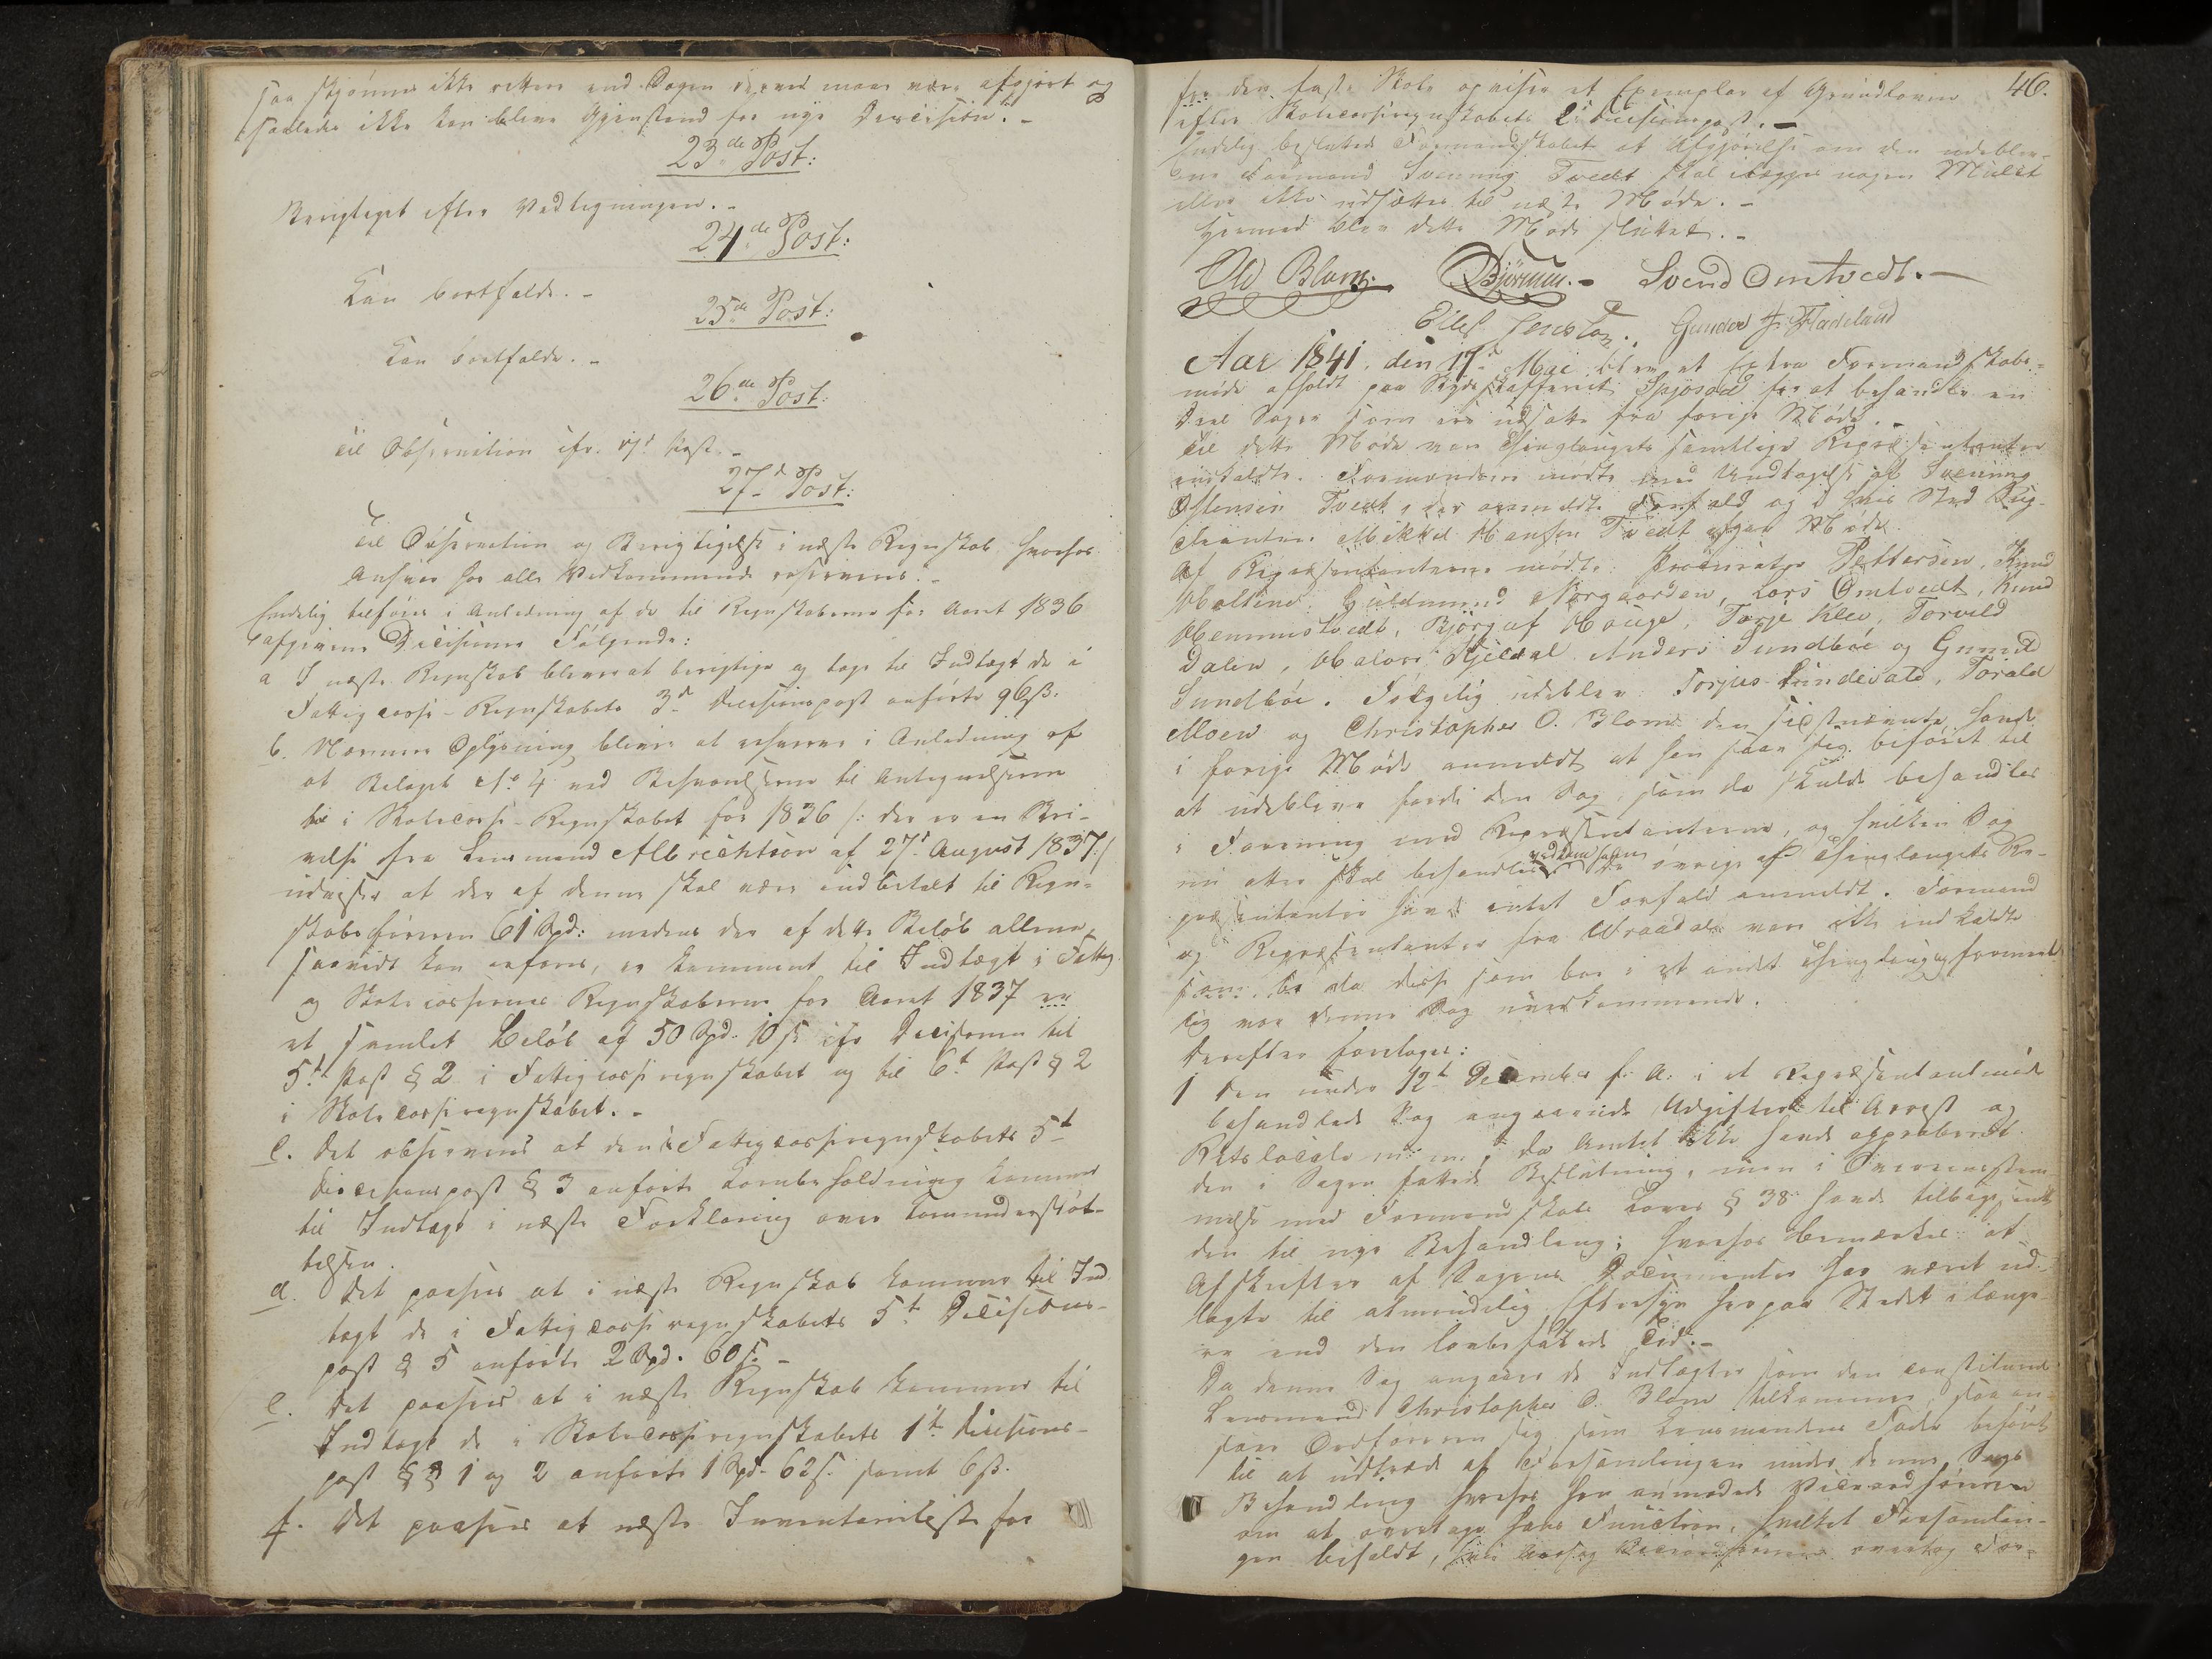 saa skjønnes ikke rettere end Sagen derved maae være afgjort og
saaledes ikke kan blive Gjenstand for nye Decision. -
23de Post:
Berigtiget efter Vedtegningen. -
24de Post:
Kan bortfalde. -
25de Post:
Kan bortfalde. -
26de Post:
Til Observation cfr. Post. -
27de Post:
Til Observation og Berigtigelse i næste Regnskab, hvorhos
Ansvar for alle Vedkommende reserveres. -
Endelig tilføies i Anledning af de til Regnskaberne for Aaret 1836
afgivne Decisioner Følgende:
a I næste Regnskab bliver at berigtige og tage til Indtægt de i
Fattigcasse-Regnskabets 3d Decisionspost anførte 96ß.
b. Nærmere Oplysning bliver at erhverve i Anledning af
at Bilaget No 4 ved Besvarelserne til Antegnelserne
til i Skolecasse-Regnskabet for 1836 /: der er en Skri-
velse fra Lensmand Albrechtson af 27d August 1837 :/
udviser at der af denne skal være indbetalt til Regn-
skabsføreren 61 Spd: medens der af dette Beløb allene,
saavidt kan erfares, er komment til Indtægt i Fattig
og Skolecassernes Regnskaberne for Aaret 1837 er
et samlet Beløb af 50 Spd. 10 ß cfr Decisionen til
5te Post § 2 i Fattigcasseregnskabet og til 6t Post § 2
i Skolecasseregnskabet. -
c. Det observeres at den i Fattigcasseregnskabets 5t
Decisionspost § 3 anførte Kornbeholdning kommer
til Indtægt i næste Forklaring over Kornunderstøt-
telsen.
d. Det paasees at i næste Regnskab kommer til Ind
tægt de i Fattigcasseregnskabets 5t Decisions-
post § 5 anførte 2 Spd. 60 ß. -
e. Det paasees at i næste Regnskab kommer til
Indtægt de i Skolecasseregnskabets 1te Decisions-
post §§ 1 og 2 anførte 1 Spd. 62 ß. samt 6 ß.
f. Det paasees at næste Inventarieliste for
46.
for den faste Skole opviser et Exemplar af Grundloven
efter Skolecasseregnskabets 2d Decisionspost. -
Endelig besluttede Formandskabet at Afgjørelse om den udeblev-
ne Formand Svenung Tvedt skal ilægges nogen Mulct
eller ikke udsættes til næste Møde. -
Hermed blev dette Møde sluttet. -
Ol Blom. Björnum. - Svend Omtvedt. -
Eilef Jensson. Gunder J. Fladeland
Aar 1841. den 17d Mai blev et Extra Formandskabs-
møde afholdt paa Skydsskafferiet Spjosod for at behandle en
Deel Sager som ere udsatte fra forrige Møde. -
Til dette Møde var Thinglaugets samtlige Repræsentanter
indkaldte. Formændene mødte med Undtagelse af Svenung
Østensen Tvedt, der anmeldte Forfald og i hvis Sted Sup-
pleanten Mikkel Hansen Tvedt gav Møde.
Af Repræsentanterne mødte: Procurator Pettersen, Knud
Moltind Guldmund Norgaarden, Lars Omtvedt, Knud
Hemmestvedt, Bjørguf Houge, Torje Klev, Torvild
Dalen, Halvor Kjeldal Anders Sundböe og Gunuld
Sundböe. Følgelig udeblev Torjus Lindevald, Torald
Moen og Christopher O. Blom den sidstnævnte havde
i forrige Møde anmeldt at han saae sig beføiet til
at udeblive fordi den Sag, som da skulde behandles
i Forening med Repræsentanterne, og hvilken Sag
nu atter skal behandles vedkom ham de øvrige af Thinglaugets Re-
præsentanter havde intet Forfald anmeldt. Formand
og Repræsentanter fra Wraadal var ikke indkaldte
som, da disse som bor i et andet Thinglaug forment-
lig var denne Sag uvedkommende.
Derefter foretoges:
1 Den under 12t December f. A. i et Repræsentantmøde
behandlede Sag angaaende Udgifter til Arrest og
Retslocale m. m., da Amtet ikke havde approberet
den i Sagen fattede Beslutning, men i Overeensstem
melse med Formandskabs Lovens § 38 havde tilbagesendt
den til nye Behandling; hvorhos bemærkes at
Afskrifter af Sagens Documenter har været ud-
lagte til almindelig Eftersyn her paa Stedet i længe-
re end den lovbefalede Tid. -
Da denne Sag angaaer de Indtægter som den constituerede
Lensmand Christopher O. Blom tilkommer, saa an-
saae Ordføreren sig som Lensmandens Fader beføiet
til at udtræde af Forsamlingen under denne Sags
Behandling hvorfor han anmodede Viceordføreren
om at overtage hans Function, hvilket Forsamlin-
gen bifaldt, overtog For-